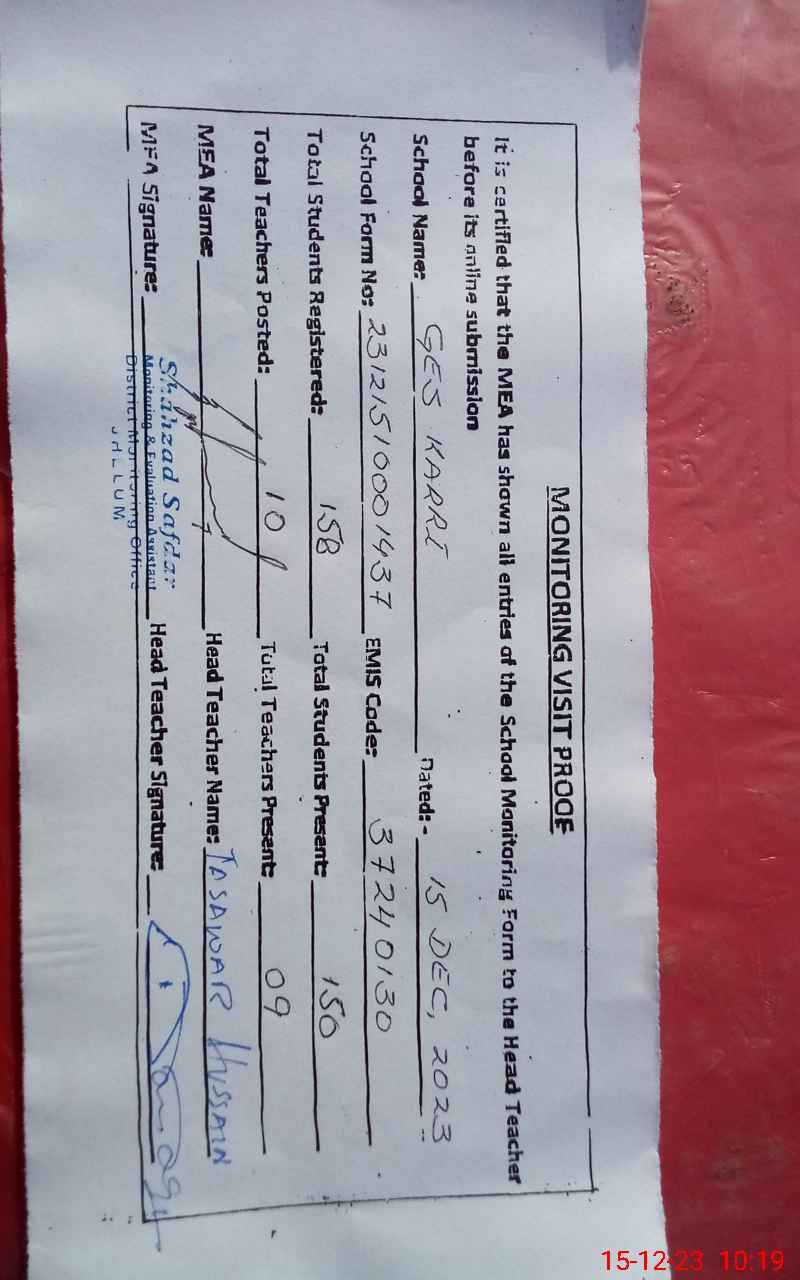 MONITORING VISIT PROOF
It is certified that the MEA has shown all entries of the School Monitoring Form to the Head Teacher
before its online submission
School Name: GES KARRI Dated:- 15 DEC, 2023
School Form No: 231215100001437 EMIS Code: 37240130
Total Students Registered: 158 Total Students Present: 150
Total Teachers Posted: 10 Total Teachers Present: 09
MEA Name: Head Teacher Name: TASAWAR HUSSAIN
MEA Signature: Head Teacher Signature:
Shahzad Safdar
Monitoring & Evaluation Assistant
District Monitoring Office
JHELUM
15-12-23 10:19